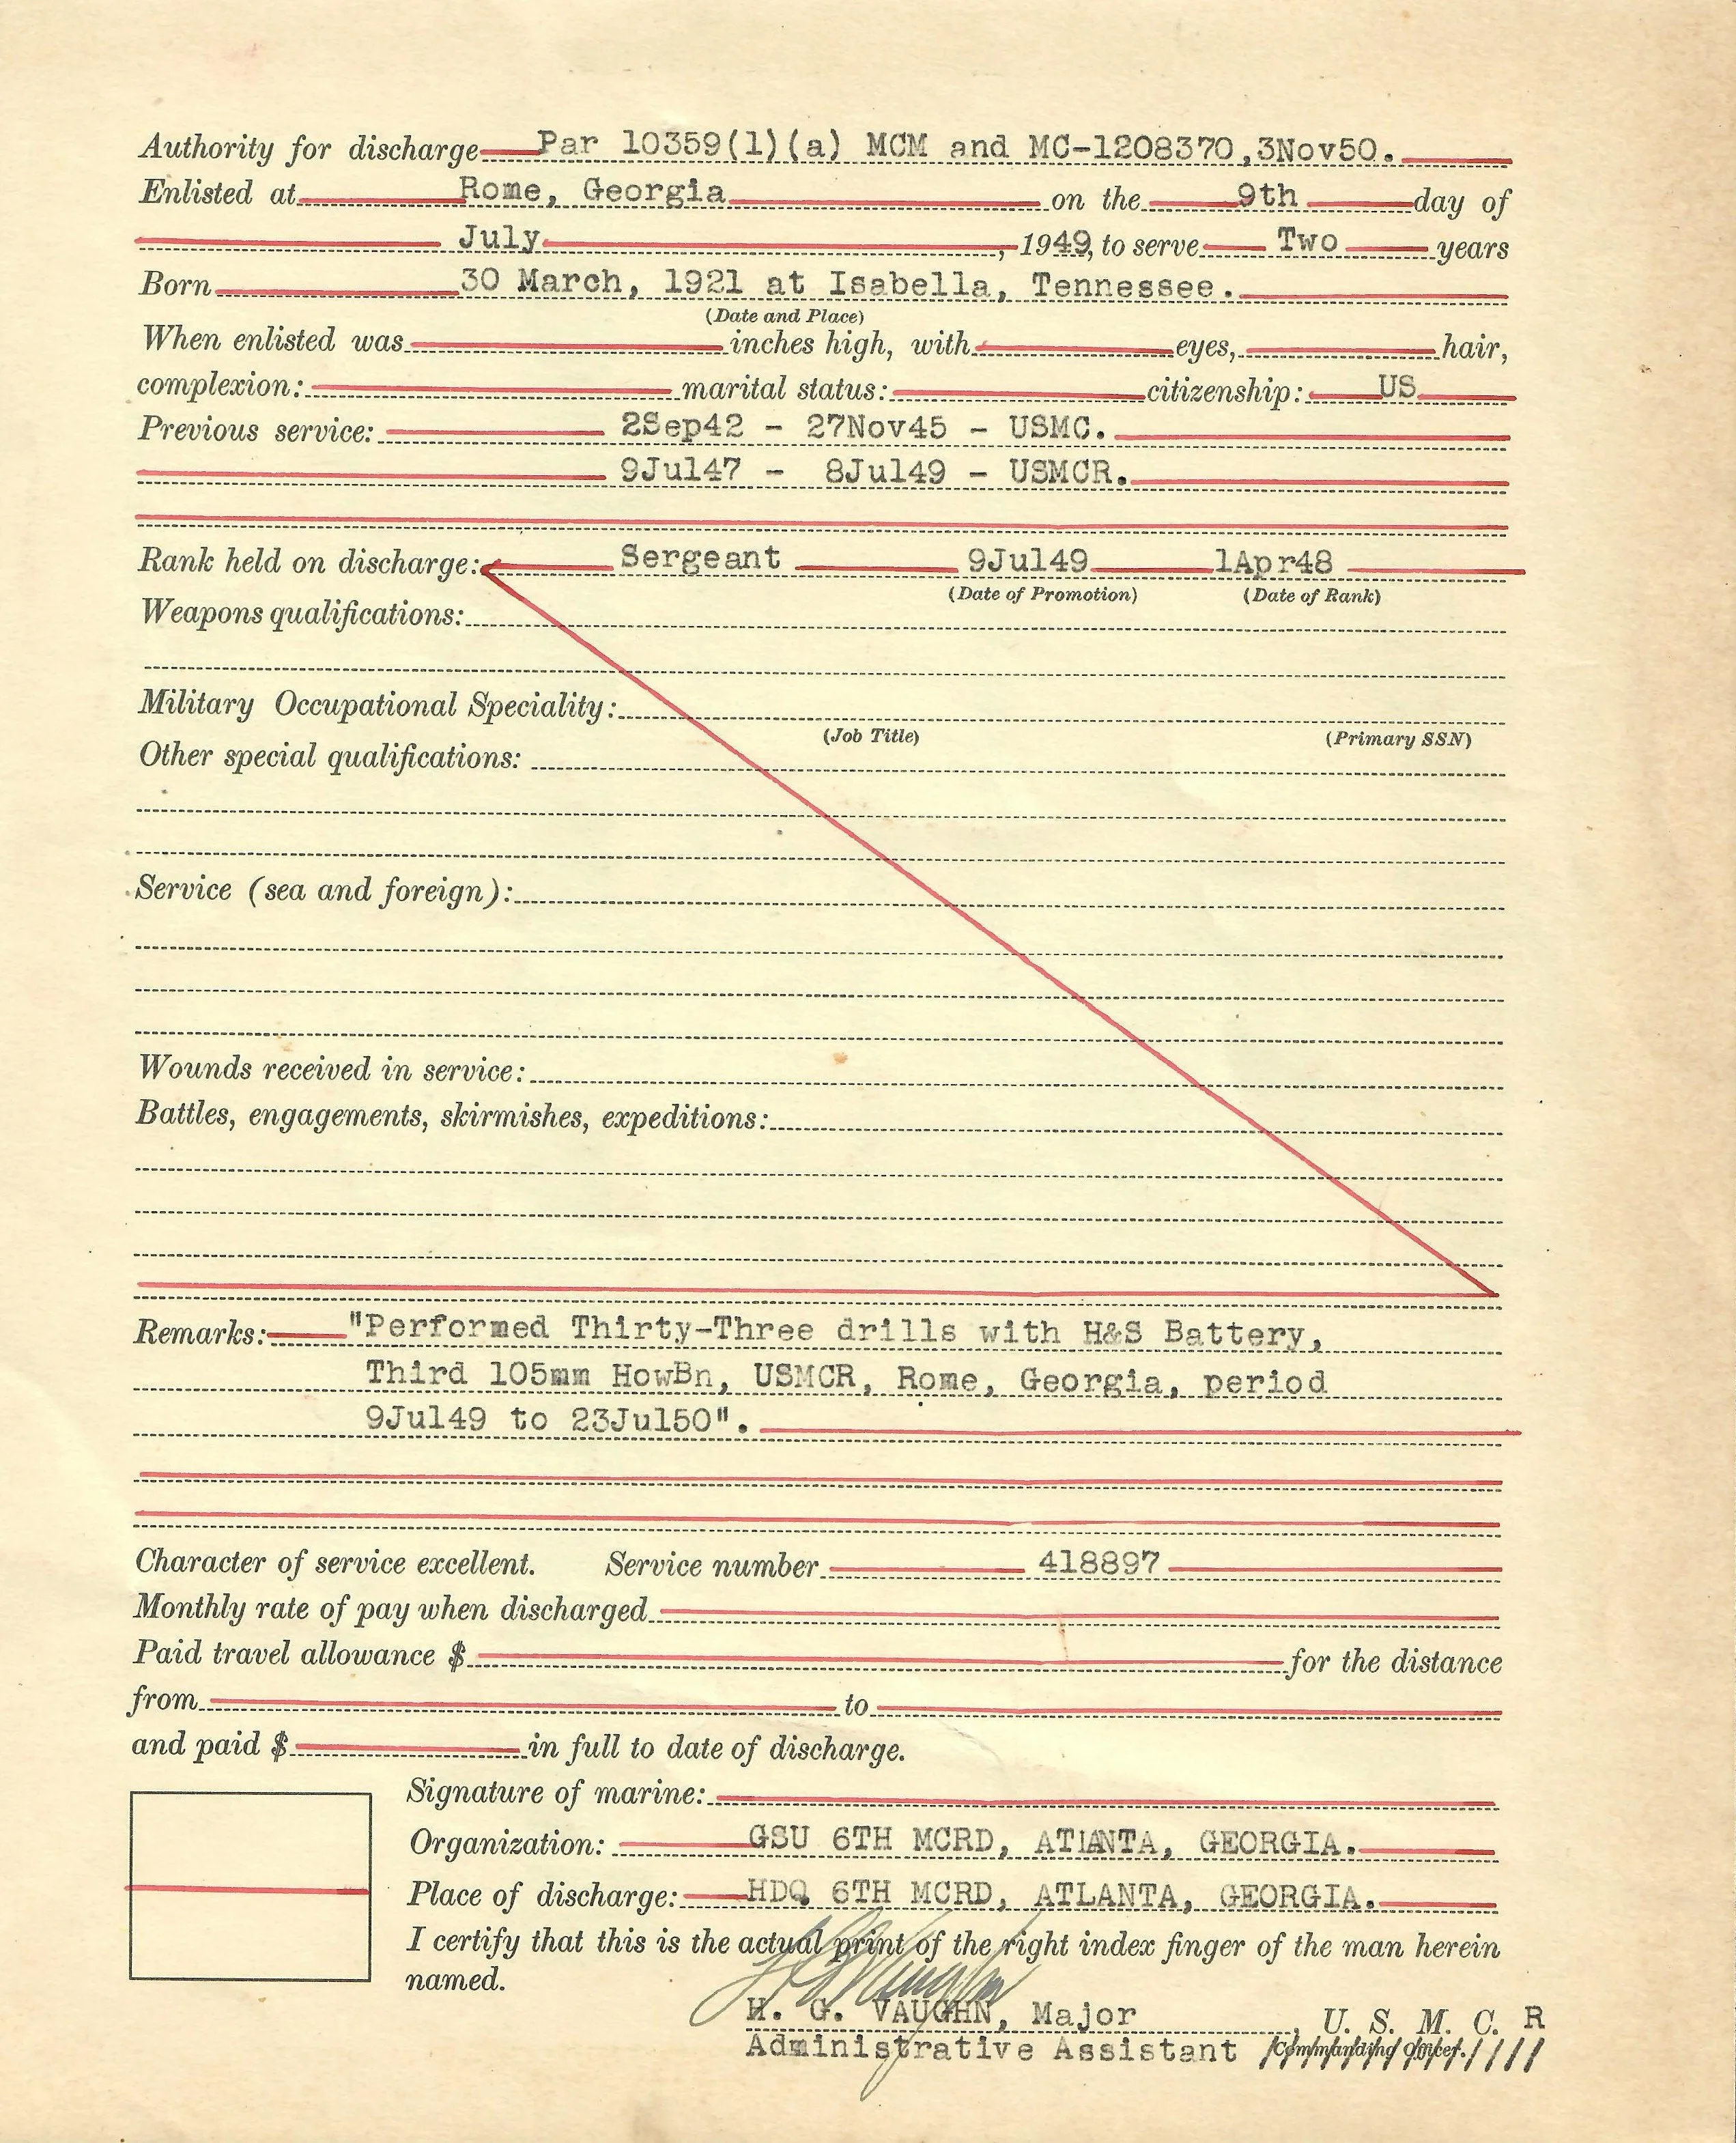 Authority for discharge Par 10359(1)(a) MCM and MC-1208370,3Nov50.
Enlisted at Rome, Georgia on the 9th day of
July, 1949, to serve Two years
Born 30 March, 1921 at Isabella, Tennessee.
(Date and Place)
When enlisted was inches high, with eyes, hair,
complexion: marital status: citizenship: US
Previous service: 2Sep42 - 27Nov45 - USMC.
9Jul47 - 8Jul49 - USMCR.
Rank held on discharge: Sergeant 9Jul49 1Apr48
(Date of Promotion) (Date of Rank)
Weapons qualifications:
Military Occupational Speciality:
(Job Title) (Primary SSN)
Other special qualifications:
Service (sea and foreign):
Wounds received in service:
Battles, engagements, skirmishes, expeditions:
Remarks: "Performed Thirty-Three drills with H&S Battery,
Third 105mm HowBn, USMCR, Rome, Georgia, period
9Jul49 to 23Jul50".
Character of service excellent. Service number 418897
Monthly rate of pay when discharged
Paid travel allowance $ for the distance
from to
and paid $ in full to date of discharge.
Signature of marine:
Organization: GSU 6TH MCRD, ATLANTA, GEORGIA.
Place of discharge: HDQ 6TH MCRD, ATLANTA, GEORGIA.
I certify that this is the actual print of the right index finger of the man herein
named.
H. G. VAUGHN, Major , U. S. M. C. R
Administrative Assistant Commanding Officer.